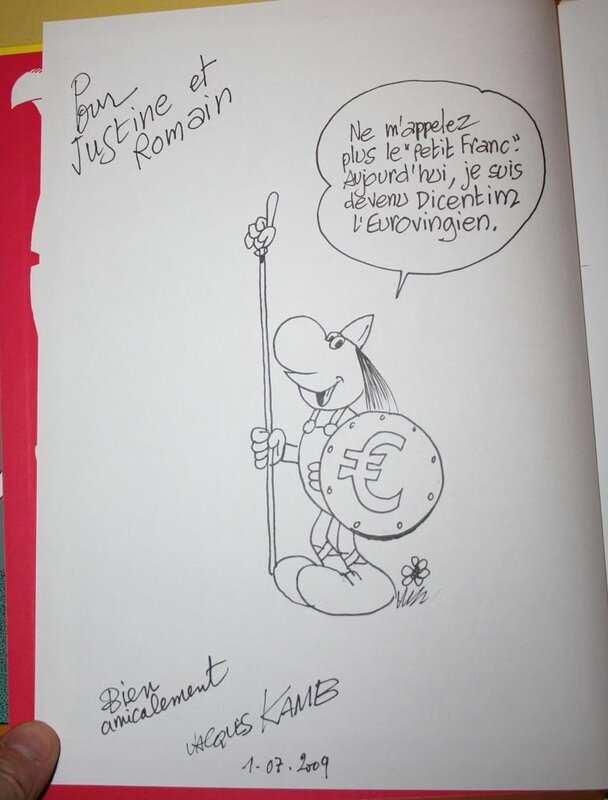 Pour
Justine et
Romain
Ne m'appelez
plus le "Petit Franc".
Aujourd'hui, je suis
devenu Dicentim
l'Eurovingien.
€
Bien
amicalement
Jacques KAMB
1-07.2009